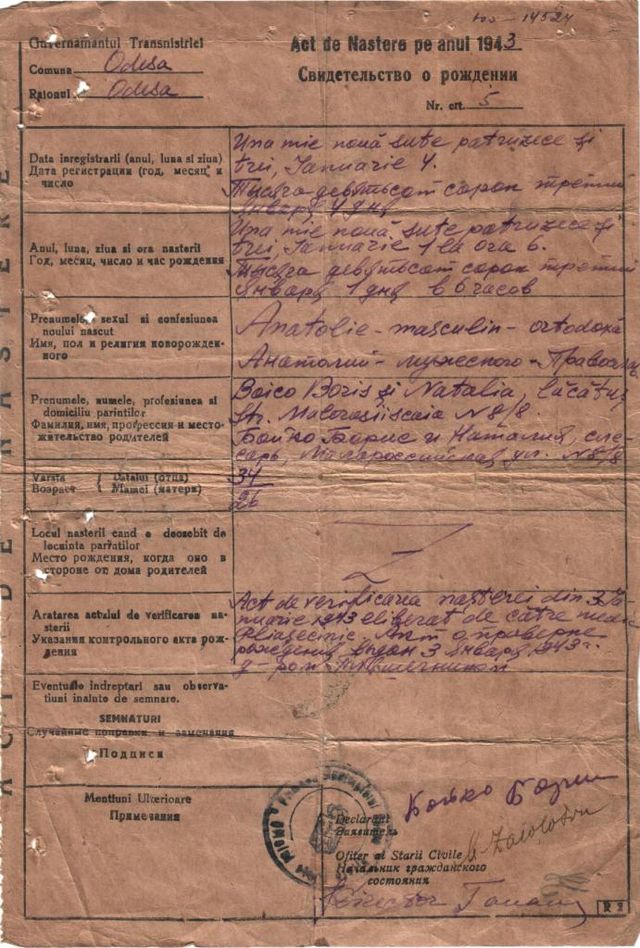 14524
Guvernamantul Transnistriei
Act de Nastere pe anul 1943
Comuna Odesa
Свидетельство о рождении
Raionul Odesa
Nr. crt. 5
Data inregistrarii (anul, luna si ziua)
Дата регистрации (год, месяц и
число
Una mie nouă sute patruzece și
trei, Ianuarie 4.
Тысяча девятьсот сорок третий
Января 4 дня
Anul, luna, ziua si ora nasterii
Год, месяц, число и час рождения
Una mie nouă sute patruzece și
trei, Ianuarie 1 la ora 6.
Тысяча девятьсот сорок третий
Января 1 дня в 6 часов
Prenumele, sexul si confesiunea
noului nascut
Имя, пол и религия новорожден-
ного
Anatolie - masculin - ortodoxă
Анатолий - мужеского -
Prenume, numele, profesiunea si
domiciliu parintilor
Фамилия, имя, профессия и место-
жительство родителей
Boico Boris și Natalia, lăcătuș
st. Malorosiiscaia N 8/8.
Бойко Борис и Наталия, сле-
сарь, Малороссийская ул. N8/8
Varsta { Tatalui (отца) 34
Возраст Mamei (матери) 26
Locul nasterii cand e deosebit de
locuinta parintilor
Место рождения, когда оно в
стороне от дома родителей
Aratarea actului de verificarea na-
sterii
Указания контрольного акта рож-
дения
Act de verificarea nasterei din 3 Ia-
nuarie 1943 eliberat de către
Акт о проверке
рождения выдан 3 Января 1943 г.
д-ром
Eventuale indreptari sau observa-
tiuni inainte de semnare.
SEMNATURI
Случайные поправки и замечания
Подписи
Mentiuni Ulterioare
Примечания
Бойко Борис
Declarant
Заявитель
Ofiter al Starii Civile
Начальник гражданского
состояния
R 2
ACT DE NASTERE